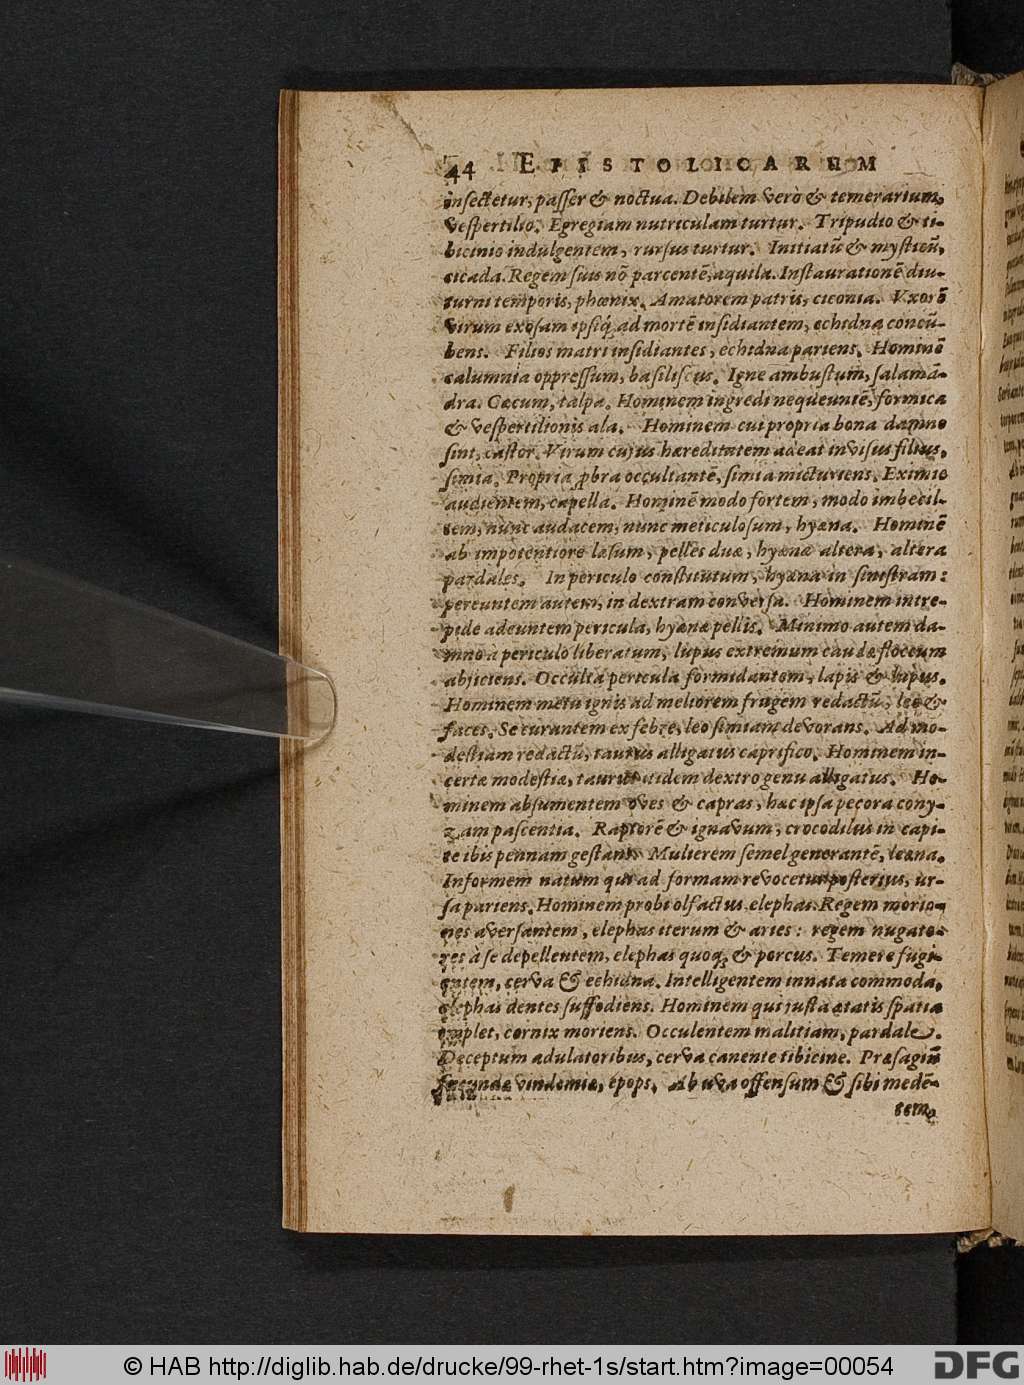 44 EPISTOLICARUM
insectetur, passer & noctua. Debilem verò & temerarium,
vespertilio. Egregiam nutriculam turtur. Tripudio & ti-
bicinio indulgentem, rursus turtur. Initiatū & mysticū,
cicada. Regem suis nō parcentē, aquila. Instaurationē diu-
turni temporis, phœnix. Amatorem patris, ciconia. Vxorē
virum exosam ipsiq́; ad mortē insidiantem, echidna concū-
bens. Filios matri insidiantes, echidna pariens. Hominē
calumnia oppressum, basiliscus. Igne ambustum, salamā-
dra. Cæcum, talpa. Hominem ingredi nequeuntē, formica
& vespertilionis ala. Hominem cui propria bona damno
sint, castor. Virum cujus hæreditatem adeat invisus filius,
simia. Propria ꝓbra occultantē, simia micturiens. Eximie
audientem, capella. Hominē modo fortem, modo imbecil-
lem, nunc audacem, nunc meticulosum, hyæna. Hominē
ab impotentiore læsum, pelles duæ, hyænæ altera, altera
pardales. In periculo constitutum, hyæna in sinistram:
pereuntem autem, in dextram conversa. Hominem intre-
pide adeuntem pericula, hyænæ pellis. Minimo autem da-
mno à periculo liberatum, lupus extremum caudæ floccum
abjiciens. Occulta pericula formidantem, lapis & lupus.
Hominem metu ignis ad meliorem frugem redactū, leo &
faces. Se curantem ex febre, leo simiam devorans. Ad mo-
destiam redactū, taurus alligatus caprifico. Hominem in-
certæ modestiæ, taurus itidem dextro genu alligatus. Ho-
minem absumentem oves & capras, hæc ipsa pecora cony-
zam pascentia. Raptorē & ignavum, crocodilus in capi-
te ibis pennam gestans. Mulierem semel generantē, leæna.
Informem natum qui ad formam revocetur posterius, ur-
sa pariens. Hominem probi olfactus, elephas. Regem morio-
nes aversantem, elephas iterum & aries: regem nugato-
res à se depellentem, elephas quoq; & porcus. Temere fugi-
entem, cerva & echidna. Intelligentem innata commoda,
elephas dentes suffodiens. Hominem qui justa ætatis spatia
implet, cornix moriens. Occulentem malitiam, pardale.
Deceptum adulatoribus, cerva canente tibicine. Præsagiū
fœcundæ vindemiæ, epops. Ab uva offensum & sibi medē-
tem,
© HAB http://diglib.hab.de/drucke/99-rhet-1s/start.htm?image=00054
DFG